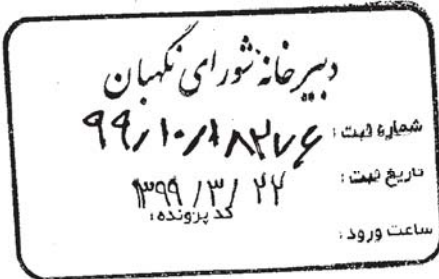 دبیرخانه شورای نگهبان
شماره ثبت : ۹۹/۱۰/۱۸۳۷۶
تاریخ ثبت : ۱۳۹۹/۳/۲۲
کد پرونده :
ساعت ورود :